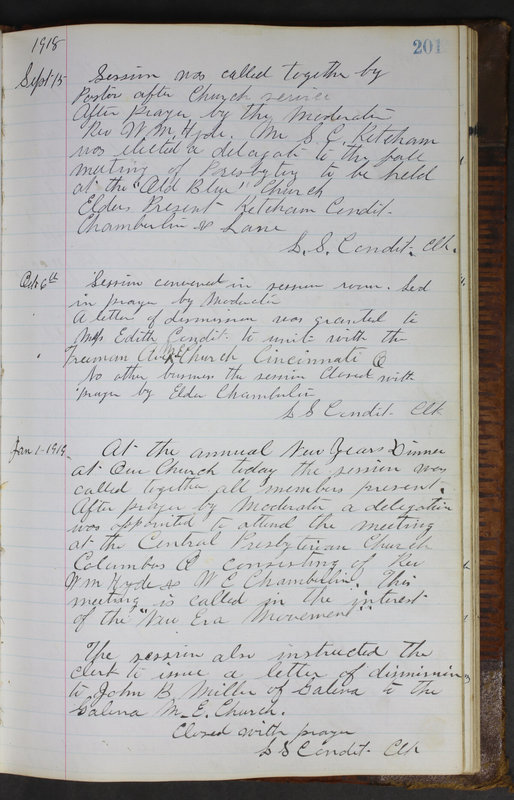 201
1918
Sept 15 Session was called together by
Pastor after Church service
After prayer by the Moderator
Rev W. M. Hyde. Mr S. C. Ketcham
was elected a delegate to the fall
meeting of Presbytery to be held
at the "Old Blue" Church
Elders Present Ketcham Condit
Chamberlin & Lane
L. S. Condit. Clk.
Oct 6th Session convened in session room. Led
in prayer by Moderator
A letter of dismission was granted to
Edith Condit to unite with the
Freeman Ave Church Cincinnati O
No other business the session closed with
prayer by Elder Chamberlin
L S Condit Clk
Jan 1-1919 At the annual New Years Dinner
at Our Church today the session was
called together all members present.
After prayer by Moderator a delegation
was appointed to attend the meeting
at the Central Presbyterian Church
Columbus O consisting of Rev
Wm Hyde & W C Chamberlin. This
meeting is called in the interest
of the "New Era Movement".
The session also instructed the
clerk to issue a letter of dismission
to John B Miller of Galena to the
Galena M. E. Church.
Closed with prayer
L S Condit Clk